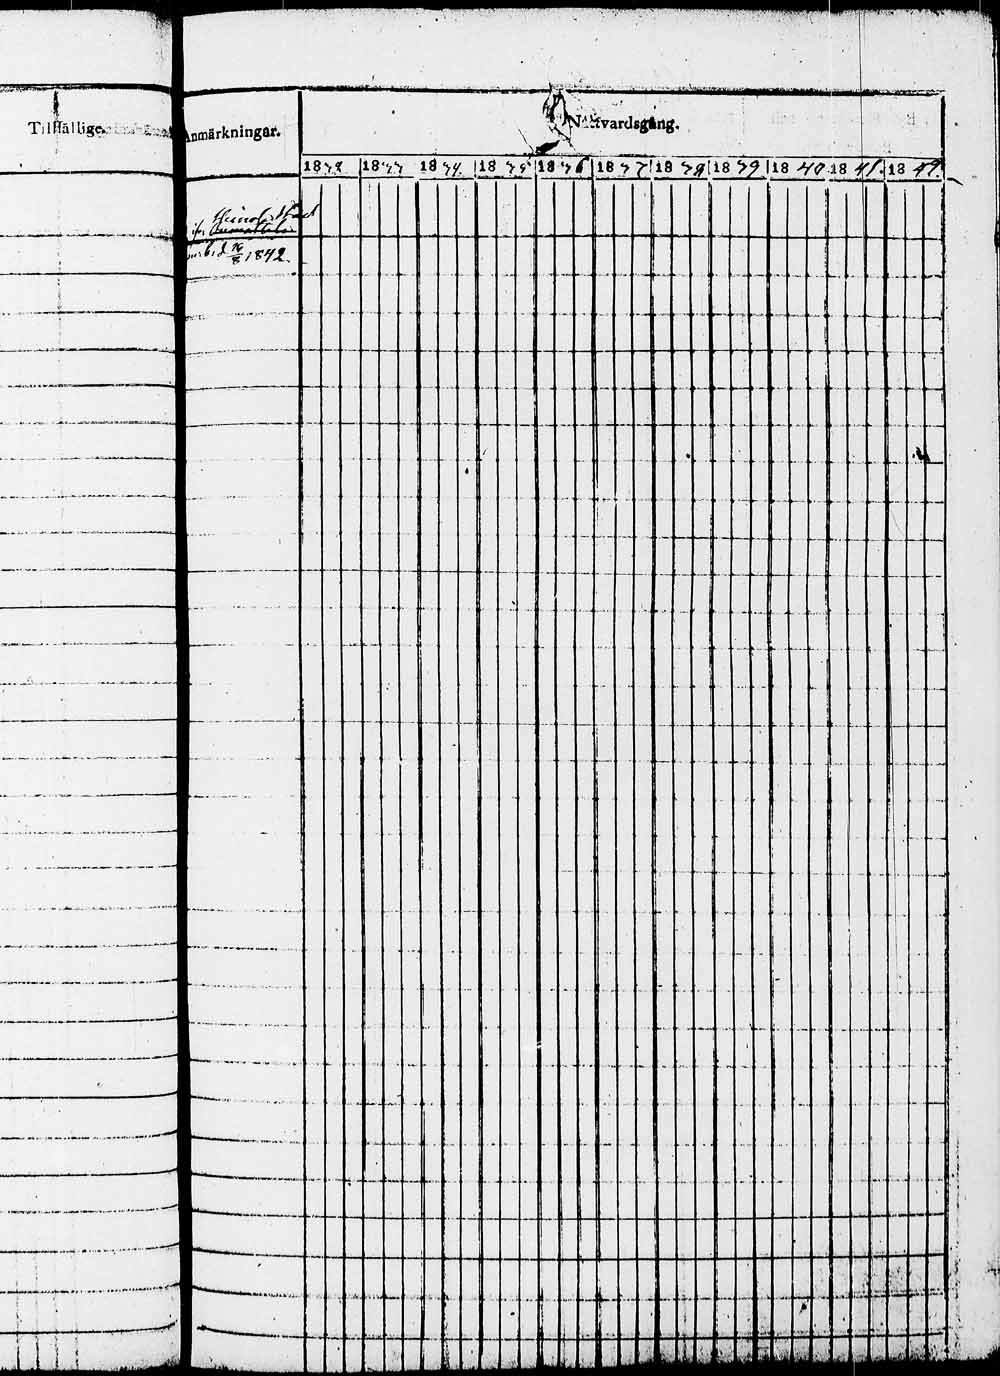 Tillfällige
Anmärkningar.
Nattvardsgång.
1832 1833 1834. 1835 1836 1837 1838 1839 1840 1841. 1842.
d 26/8 1842.